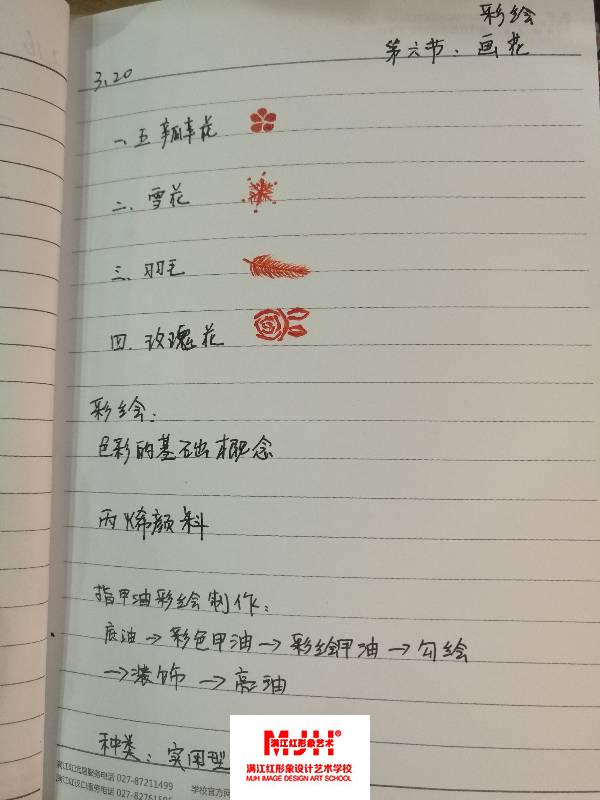 彩绘
第六节：画花
3.20
一、五瓣花
二、雪花
三、羽毛
四、玫瑰花
彩绘：
色彩的基础概念
丙烯颜料
指甲油彩绘制作：
底油→彩色甲油→彩绘甲油→勾绘
→装饰→亮油
种类：实用型
满江红汉口服务电话 027-82761
服务电话 027-87211499 学校官方网
满江红形象艺术
MJH
满江红形象设计艺术学校
MJH IMAGE DESIGN ART SCHOOL